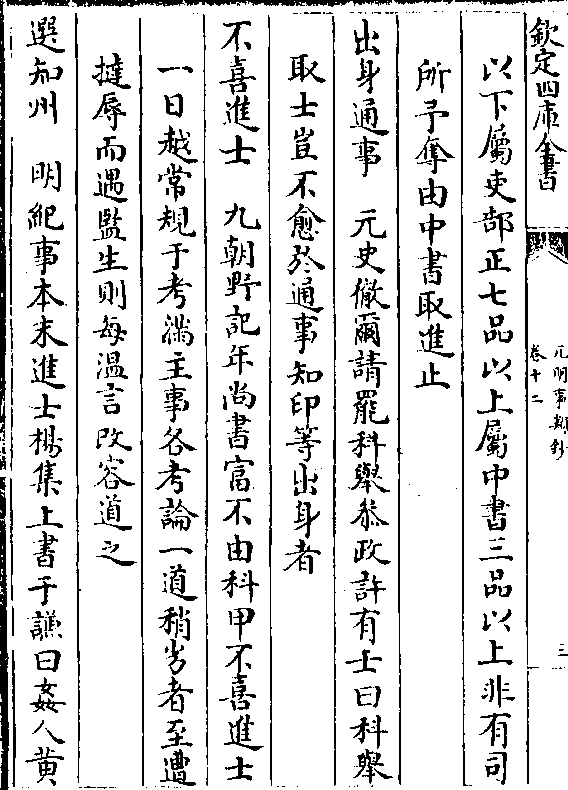 欽定四庫全書
元明事類鈔
卷十二
三
以下屬吏部正七品以上屬中書三品以上非有司
所予奪由中書取進止
出身通事　元史徹爾請罷科舉叅政許有士曰科舉
取士豈不愈於通事知印等出身者
不喜進士　九朝野記年尚書富不由科甲不喜進士
一日越常規于考滿主事各考論一道稍劣者至遭
撻辱而遇監生則每溫言改容道之
選知州　明紀事本末進士楊集上書于謙曰姦人黄